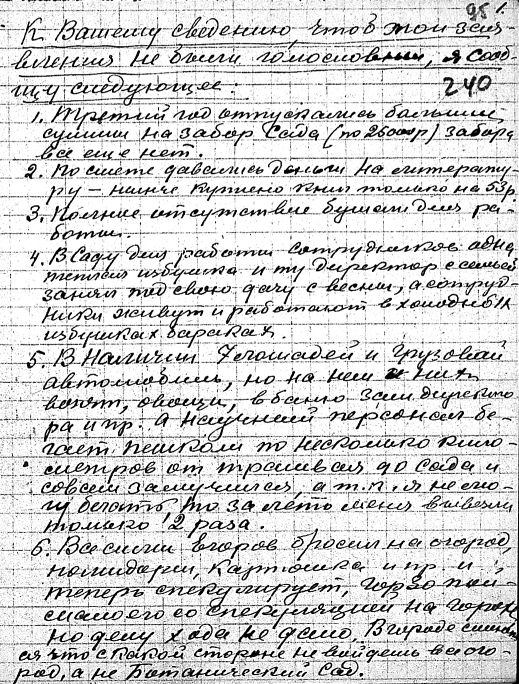 95
К Вашему сведению, чтоб мои заяв-
вления не были голословными, я сооб-
щу следующее:
240
1. Третий год отпускались большие
суммы на забор Сада (по 25000р) забора
все еще нет.
2. По смете давались деньги на литерату-
ру – нынче куплено книг только на 53р.
3. Полное отсутствие бумаги для ра-
боты.
4. В Саду для работы сотрудников одна
теплая избушка и ту директор с семьей
занял под свою дачу с весны, а сотруд-
ники живут и работают в холодных
избушках бараках.
5. В наличии 7 лошадей и грузовой
автомобиль, но на нем и на них
возят, овощи, в баню зам. директо-
ра и пр. а научный персонал бе-
гает пешком по несколько кило-
метров от трамвая до сада и
совсем замучился, а т.к. я не мо-
гу бегать, то за лето меня вывезли
только 2 раза.
6. Все силы Егоров бросил на огород,
помидоры, картошка и пр и
теперь спекулирует, горзо пой-
мало его со спекуляцией на горохе
но делу хода не дало. В городе смеют-
ся что с какой стороне не войдешь все ого-
род, а не Ботанический Сад.